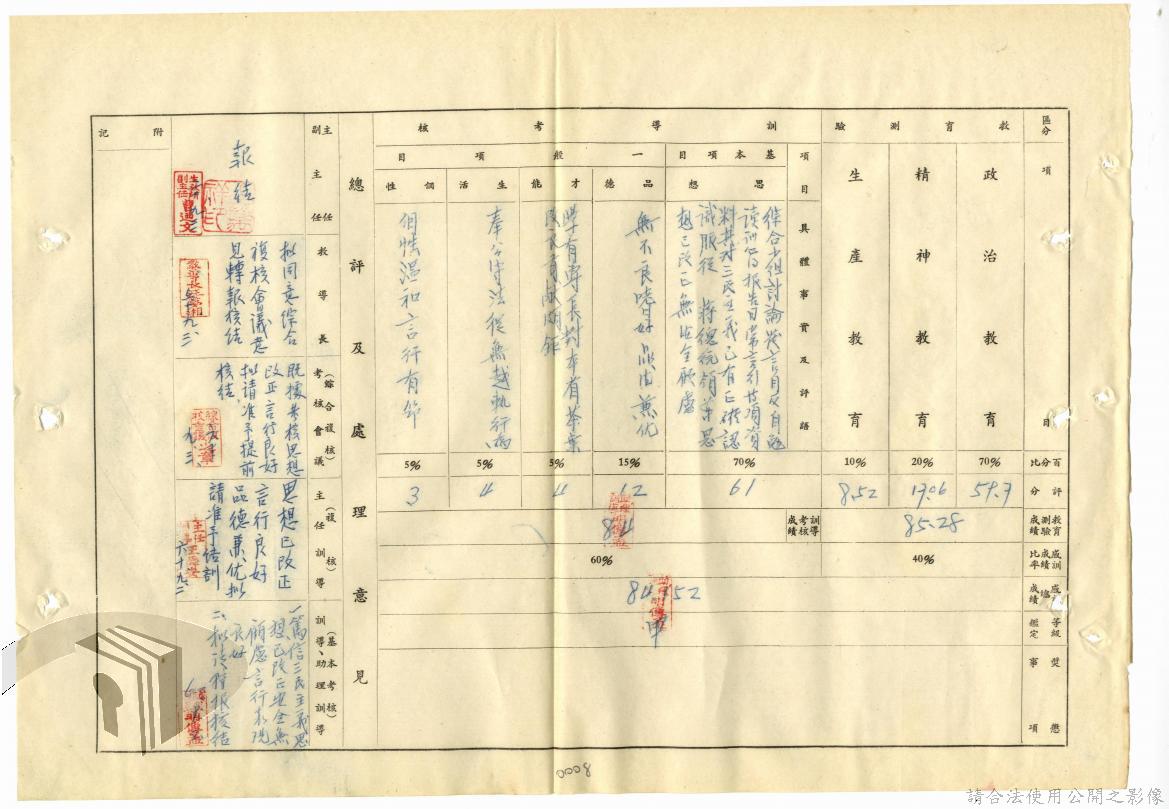 區分
項
目
教育測驗
政治教育
精神教育
生產教育
訓導考核
項目
具體事實及評語
基本項目
思想
一般項目
品德
才能
生活
個性
綜合小組討論發言目及自
讀訓心得報告日常言行
料其對三民主義已有正確認
識服從 蔣總統領導思
想已改正無安全顧慮
無不良嗜好品德兼優
學有專長對本
奉公守法從無越軌行為
個性溫和言行有節
百分比
70%
20%
10%
70%
15%
5%
5%
5%
評分
59.7
17.06
8.52
61
12
4
4
3
教育測驗成績
85.28
訓導考核成績
84
感訓成績比率
40%
60%
感訓總成績
84.52
等級鑑定
甲
獎懲事項
總評及處理意見
(基本考核)
訓導、助理訓導
一、篤信三民主義思
想已改正安全無
顧慮言行表現
良好
(複核)
主任訓導
思想已改正
言行良好
品德兼優擬
請准予結訓
六十九、
(綜合複核)
考核會議
既據考核思想
改正言行良好
擬請准予提前
核結
九、三、
教導長
擬同意綜合
複核會議意
見轉報核結
九、三、
主任
副主任
報結
曹通文
附記
0008
請合法使用公開之影像